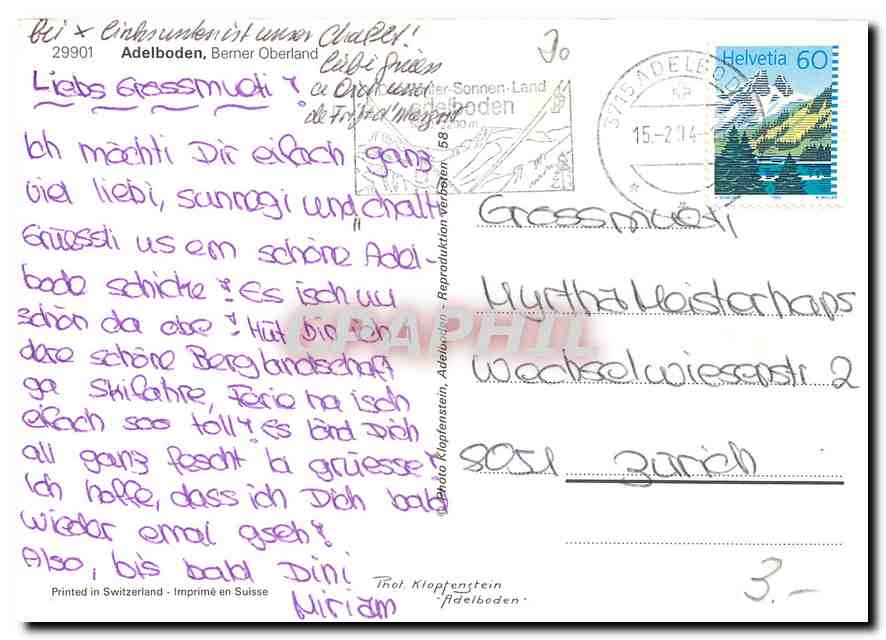 Bei x links unten ist unser Chalet!
29901 Adelboden, Berner Oberland
liebi Grüess
a Dich und
de Fritz d'Margrit
30
Liebs Grossmueti!
Ich möchti Dir eifach ganz
viel liebi, sunnagi und chalti
Grüessli us em schöne Adel-
bode schicke! Es isch uu
schön da obe! Hüt bin ich i
dere schöne Berglandschaft
ga Skifahre, Ferie ha isch
eifach soo toll! Es lönd Dich
all ganz fescht la grüesse!
Ich hoffe, dass ich Dich bald
wieder emal gseh!
Also, bis bald Dini
Miriam
Printed in Switzerland - Imprimé en Suisse
Phot. Klopfenstein
- Adelboden -
© Photo Klopfenstein, Adelboden - Reproduktion verboten 58
-Sonnen-Land
adelboden
3715 ADELBODEN
15.-2.94-
Helvetia 60
Grossmueti
Myrtha Meisterhans
Wechselwiesenstr 2
8051 Zürich
3.-
CPAPHIL